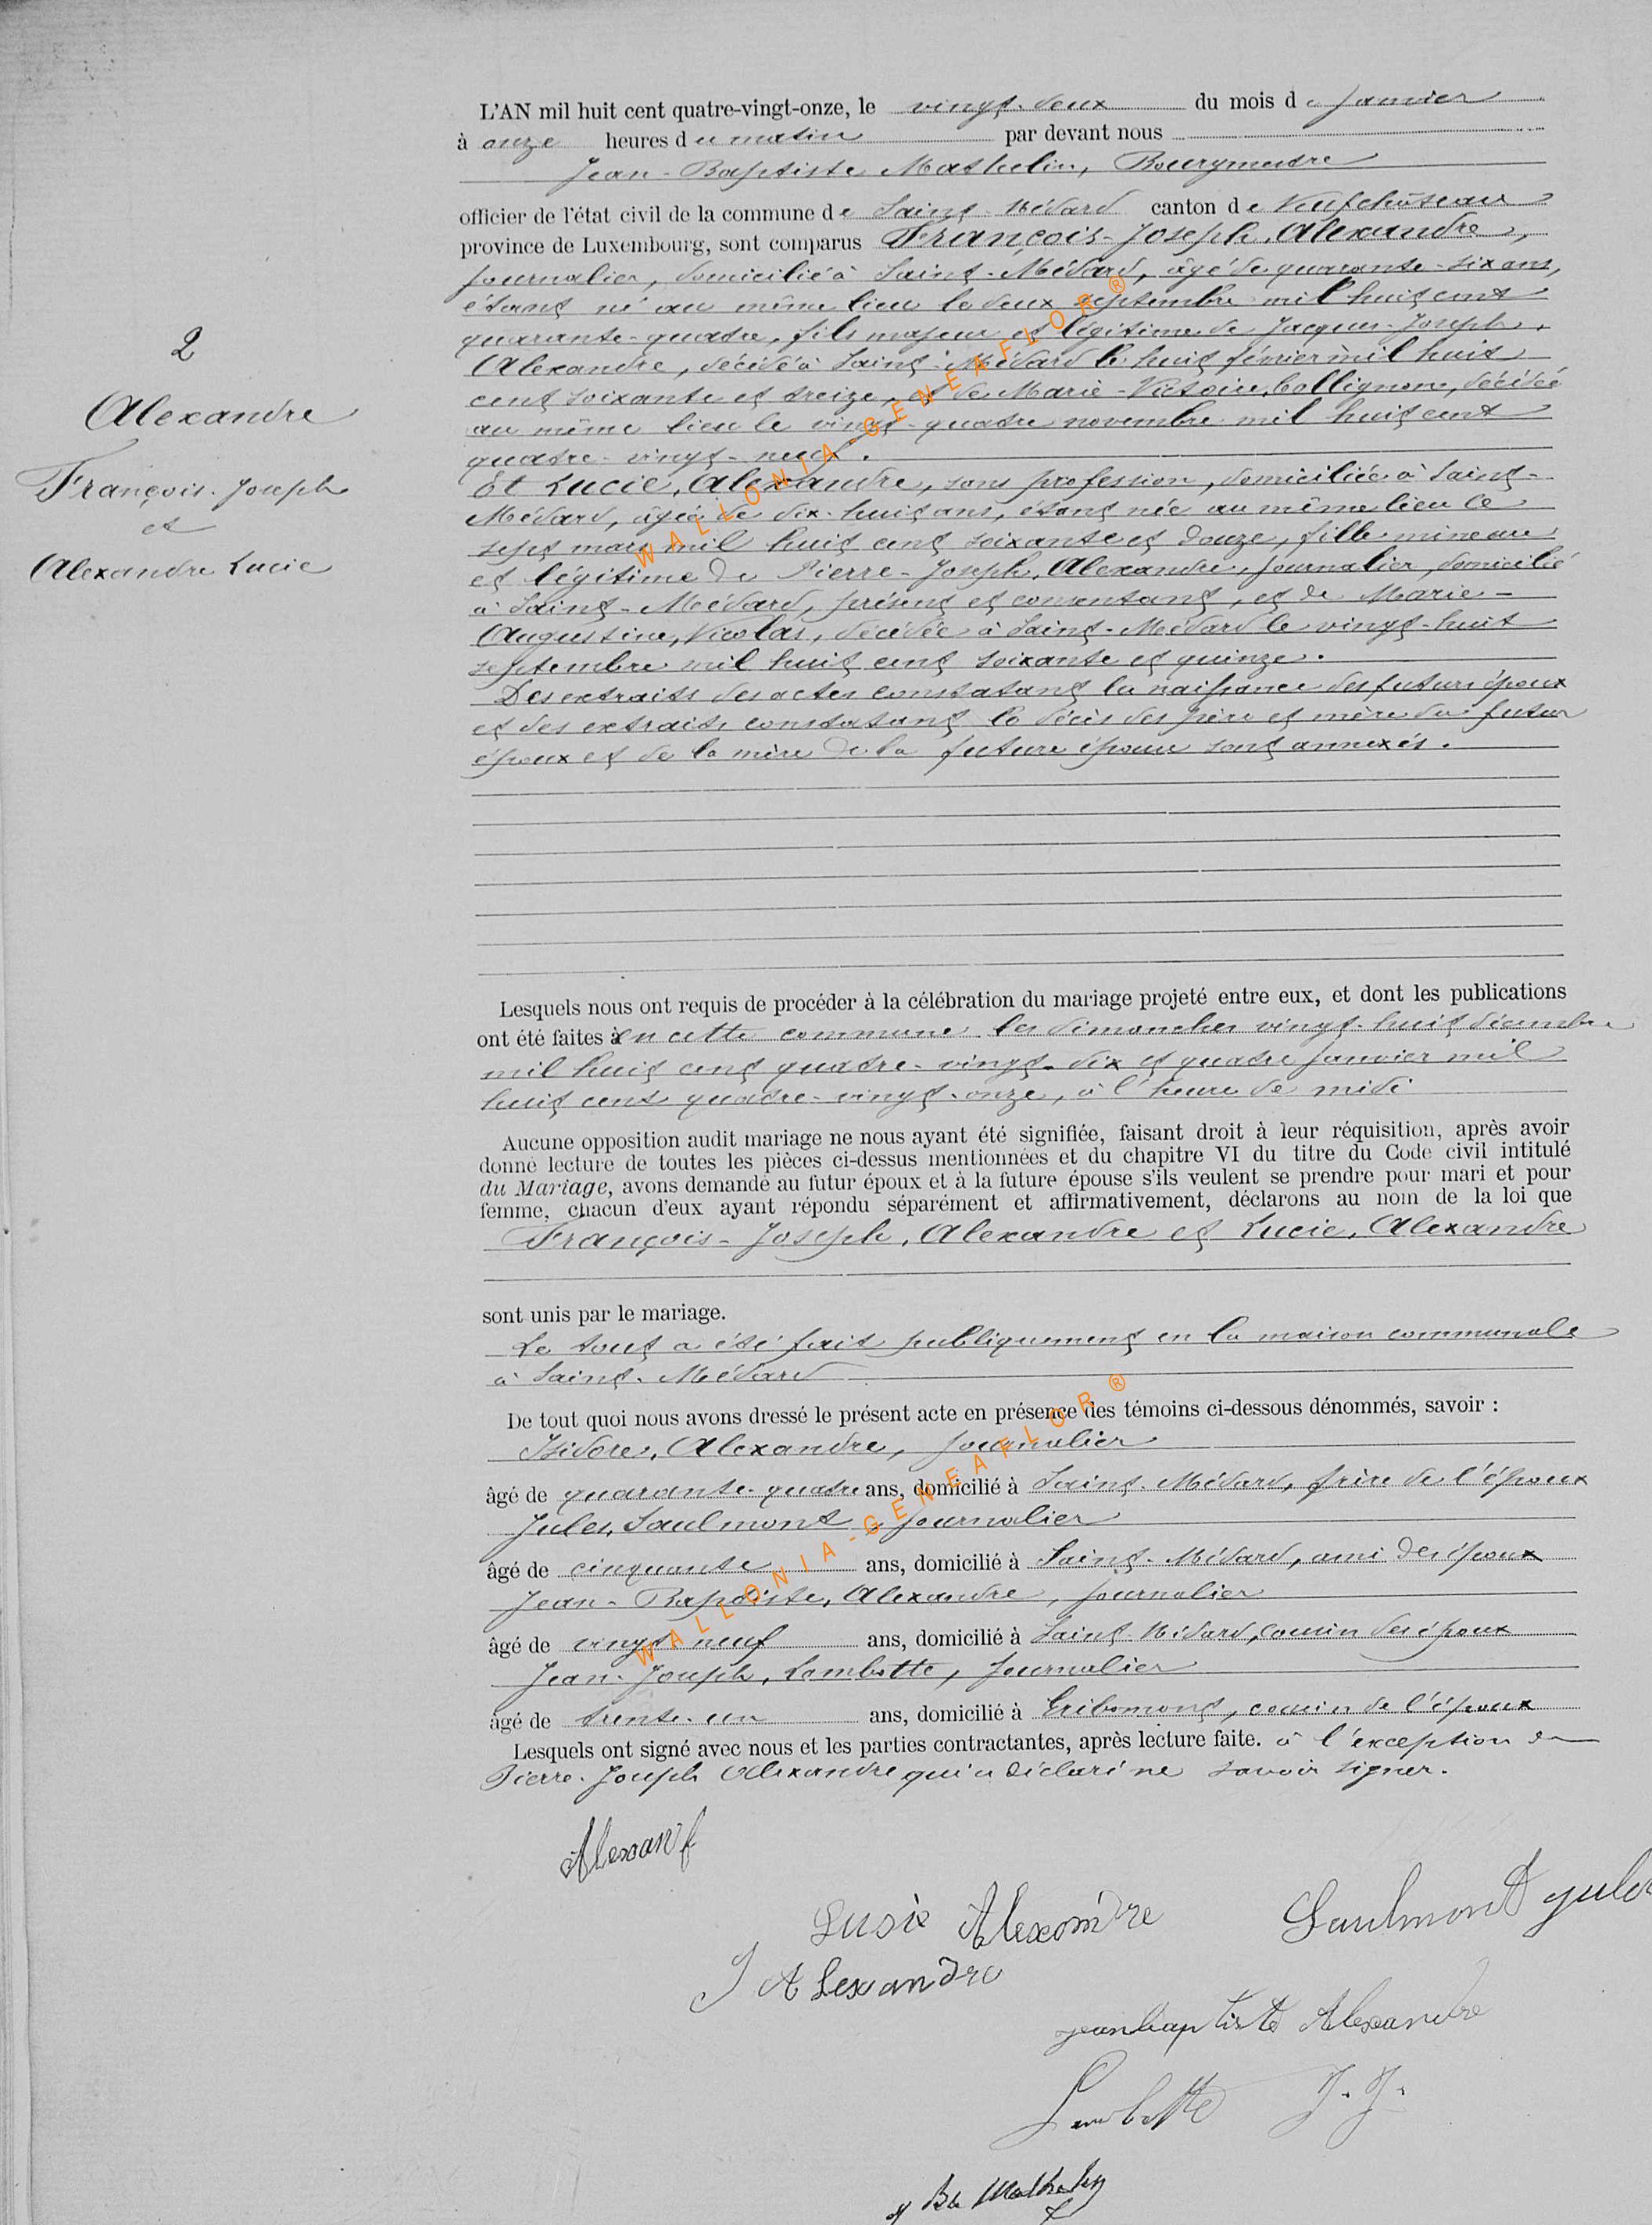 L'AN mil huit cent quatre-vingt-onze, le vingt-deux du mois de janvier
à onze heures du matin par devant nous
Jean-Baptiste Mathelin, Bourgmestre
officier de l'état civil de la commune de Saint-Médard canton de Neufchâteau
province de Luxembourg, sont comparus François-Joseph, Alexandre,
journalier, domicilié à Saint-Médard, âgé de quarante-six ans,
étant né au même lieu le deux septembre mil huit cent
quarante-quatre, fils majeur et légitime de Jacques-Joseph,
Alexandre, décédé à Saint-Médard le huit février mil huit
cent soixante et treize, et de Marie-Victoire, Collignon, décédée
au même lieu le vingt-quatre novembre mil huit cent
quatre-vingt-neuf.
2
Alexandre
François-Joseph
et
Alexandre Lucie
Et Lucie, Alexandre, sans profession, domiciliée à Saint-
Médard, âgée de dix-huit ans, étant née au même lieu le
sept mars mil huit cent soixante et douze, fille mineure
et légitime de Pierre-Joseph, Alexandre, journalier, domicilié
à Saint-Médard, présent et consentant, et de Marie-
Augustine, Nicolas, décédée à Saint-Médard le vingt-huit
septembre mil huit cent soixante et quinze.
Des extraits des actes constatant la naissance des futurs époux
et des extraits constatant le décès des père et mère du futur
époux et de la mère de la future épouse sont annexés.
Lesquels nous ont requis de procéder à la célébration du mariage projeté entre eux, et dont les publications
ont été faites à en cette commune les dimanches vingt-huit décembre
mil huit cent quatre-vingt-dix et quatre janvier mil
huit cent quatre-vingt-onze, à l'heure de midi
Aucune opposition audit mariage ne nous ayant été signifiée, faisant droit à leur réquisition, après avoir
donné lecture de toutes les pièces ci-dessus mentionnées et du chapitre VI du titre du Code civil intitulé
du Mariage, avons demandé au futur époux et à la future épouse s'ils veulent se prendre pour mari et pour
femme, chacun d'eux ayant répondu séparément et affirmativement, déclarons au nom de la loi que
François-Joseph, Alexandre et Lucie, Alexandre
sont unis par le mariage.
Le tout a été fait publiquement en la maison communale
à Saint-Médard
De tout quoi nous avons dressé le présent acte en présence des témoins ci-dessous dénommés, savoir :
Isidore, Alexandre, journalier
âgé de quarante-quatre ans, domicilié à Saint-Médard, frère de l'époux
Jules, Saulmont, journalier
âgé de cinquante ans, domicilié à Saint-Médard, ami des époux
Jean-Baptiste, Alexandre, journalier
âgé de vingt-neuf ans, domicilié à Saint-Médard, cousin des époux
Jean-Joseph, Lambotte, journalier
âgé de trente-un ans, domicilié à Gribomont, cousin de l'époux
Lesquels ont signé avec nous et les parties contractantes, après lecture faite. à l'exception de
Pierre-Joseph Alexandre qui a déclaré ne savoir signer.
Lusie Alexandre
Saulmont jules
J Alexandre
jean baptiste Alexandre
Lambotte J. J.
Mathelin
WALLONIA-GENEAFLOR ®
WALLONIA-GENEAFLOR ®